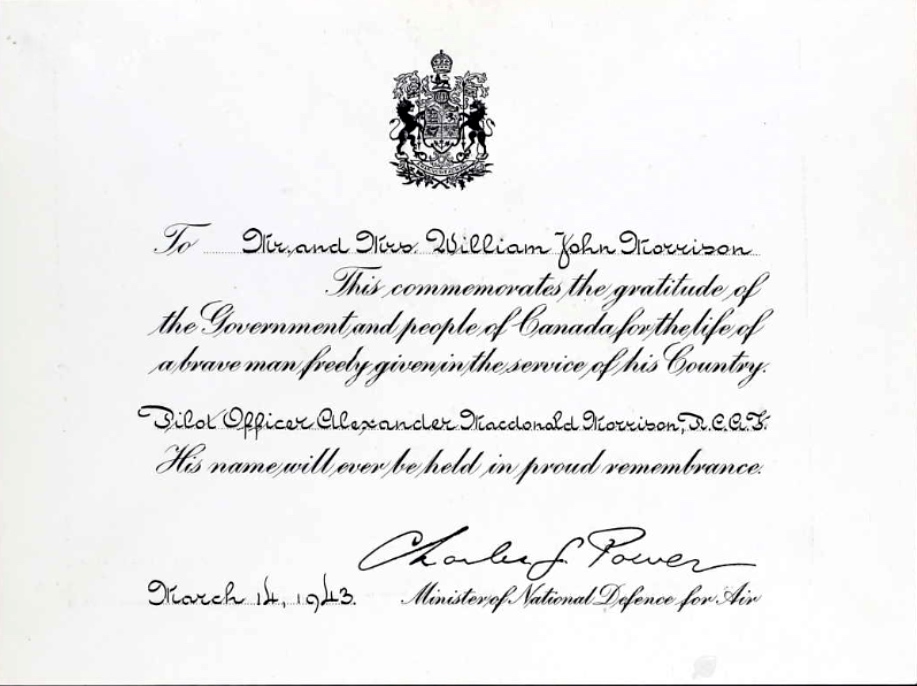 To Mr. and Mrs. William John Morrison
This commemorates the gratitude of
the Government and people of Canada for the life of
a brave man freely given in the service of his Country.
Pilot Officer Alexander Macdonald Morrison, R.C.A.F.
His name will ever be held in proud remembrance.
Charles G. Power
March 14, 1943. Minister of National Defence for Air